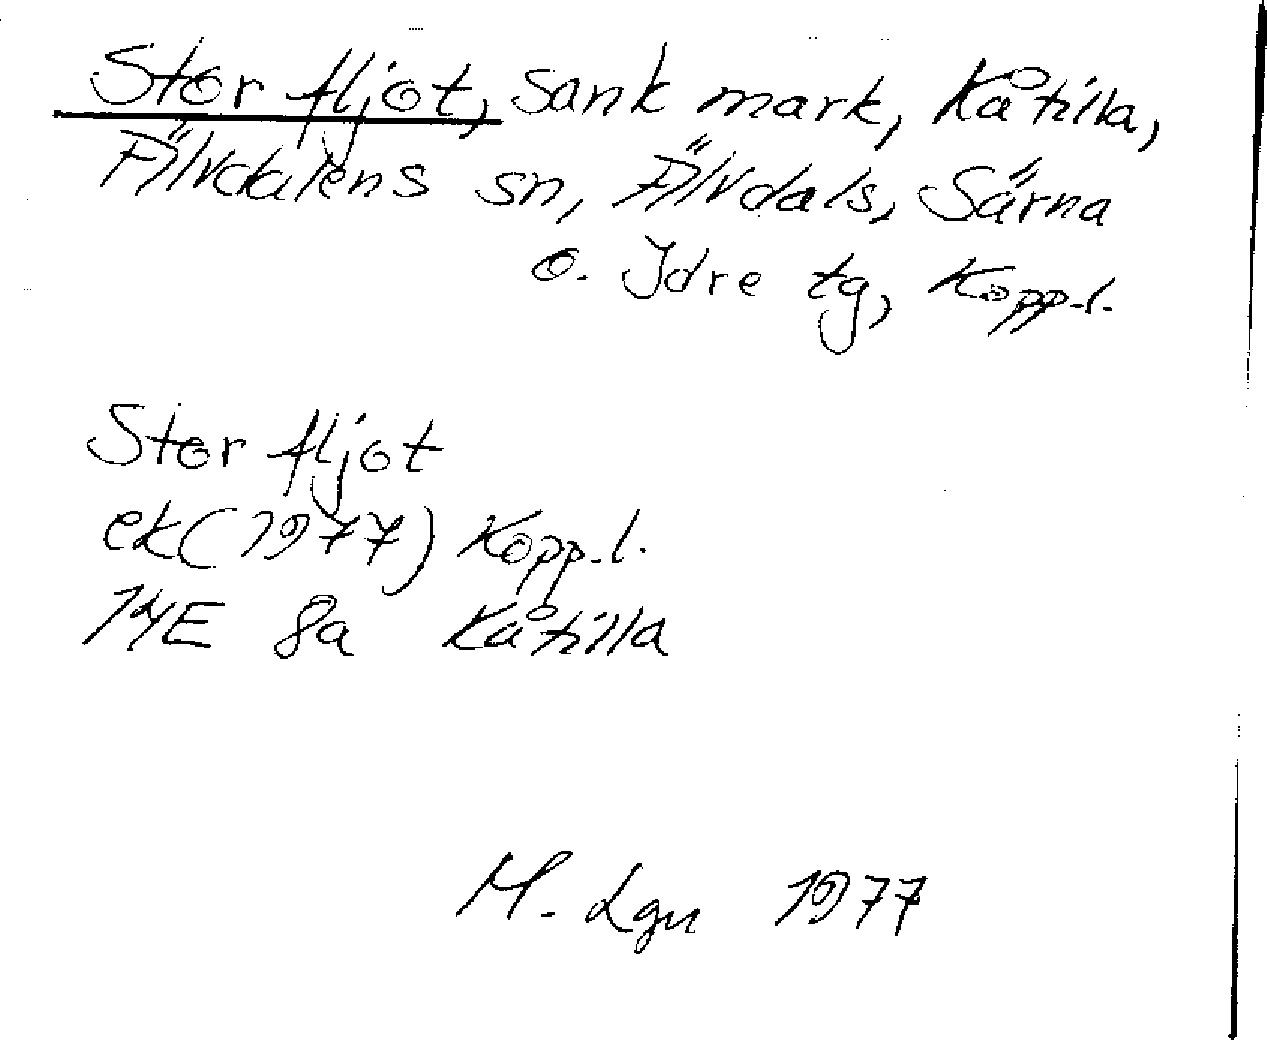 Stor fljot, sank mark, Kåtilla,
Älvdalens sn, Älvdals, Särna
o. Idre tg, Kopp.l.
Stor fljot
ek(1977) Kopp.l.
14E 8a Kåtilla
M. Lgn 1977